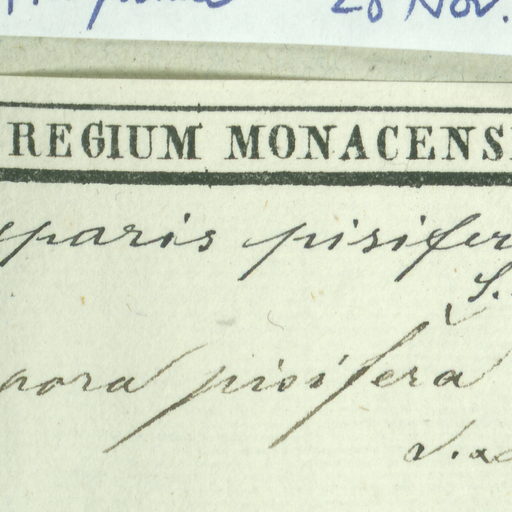 28 Nov.
REGIUM MONACENS
paris pisifer
S.
pora pisifera